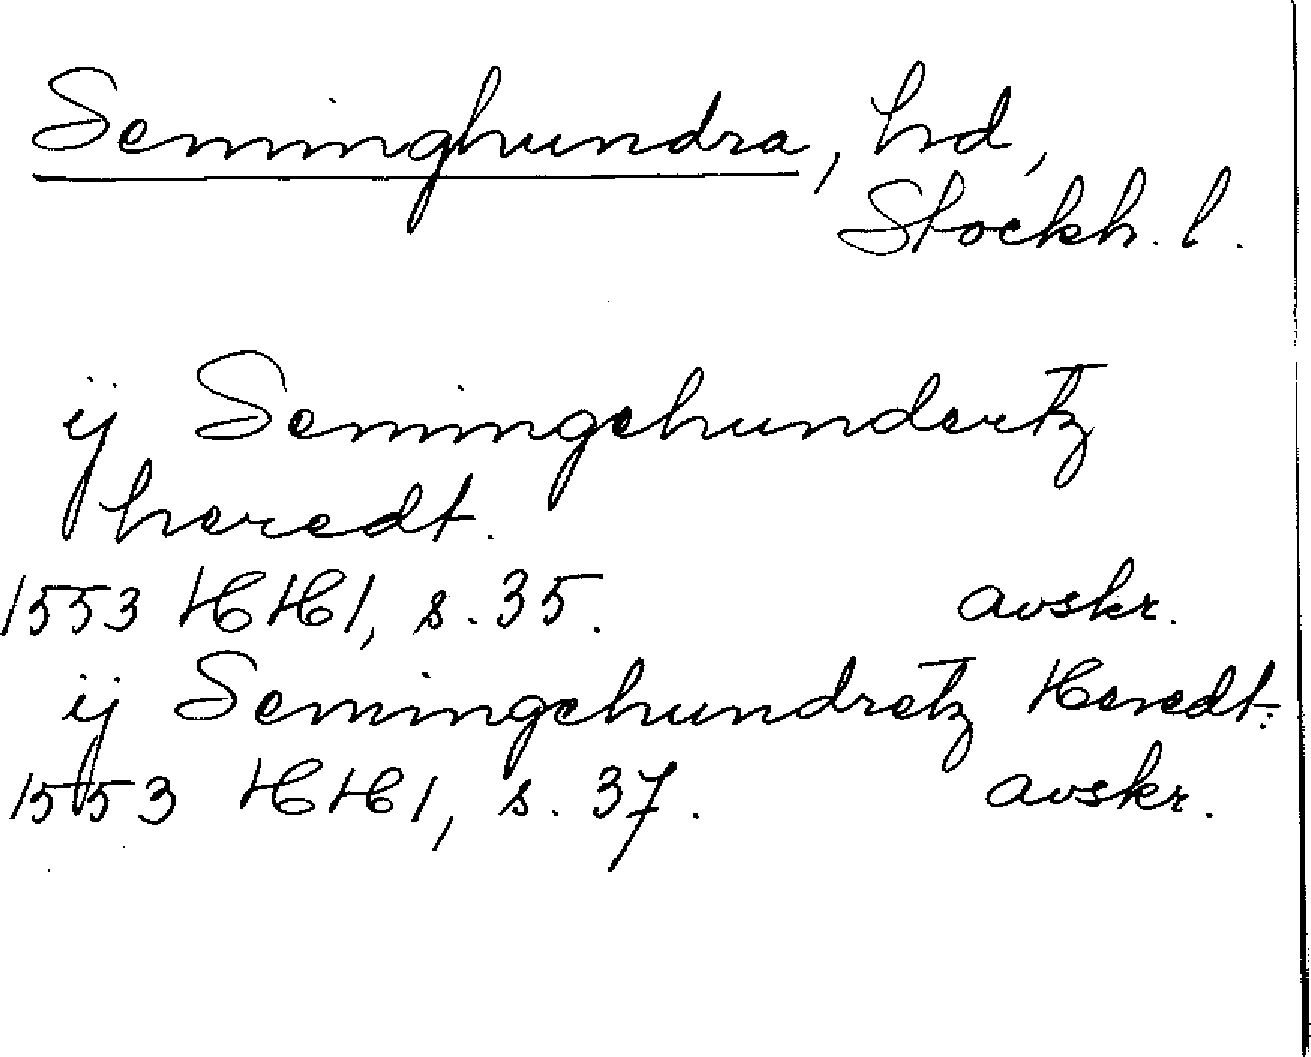 Seminghundra, hd,
Stockh. l.
ij Semingehundertz
heredt.
1553 HH1, s. 35. avskr.
ij Semingehundretz Heredt:
1553 HH1, s. 37. avskr.